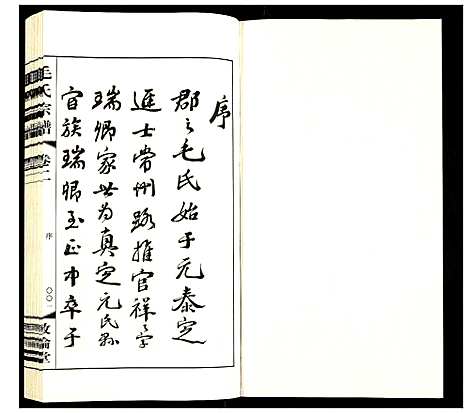 序
郡之毛氏始于元泰定
進士常州路推官祥之字
瑞卿家世为真定元氏县
宦族瑞卿至正中卒于
毛氏宗譜
卷二
序
〇〇一
敦倫堂